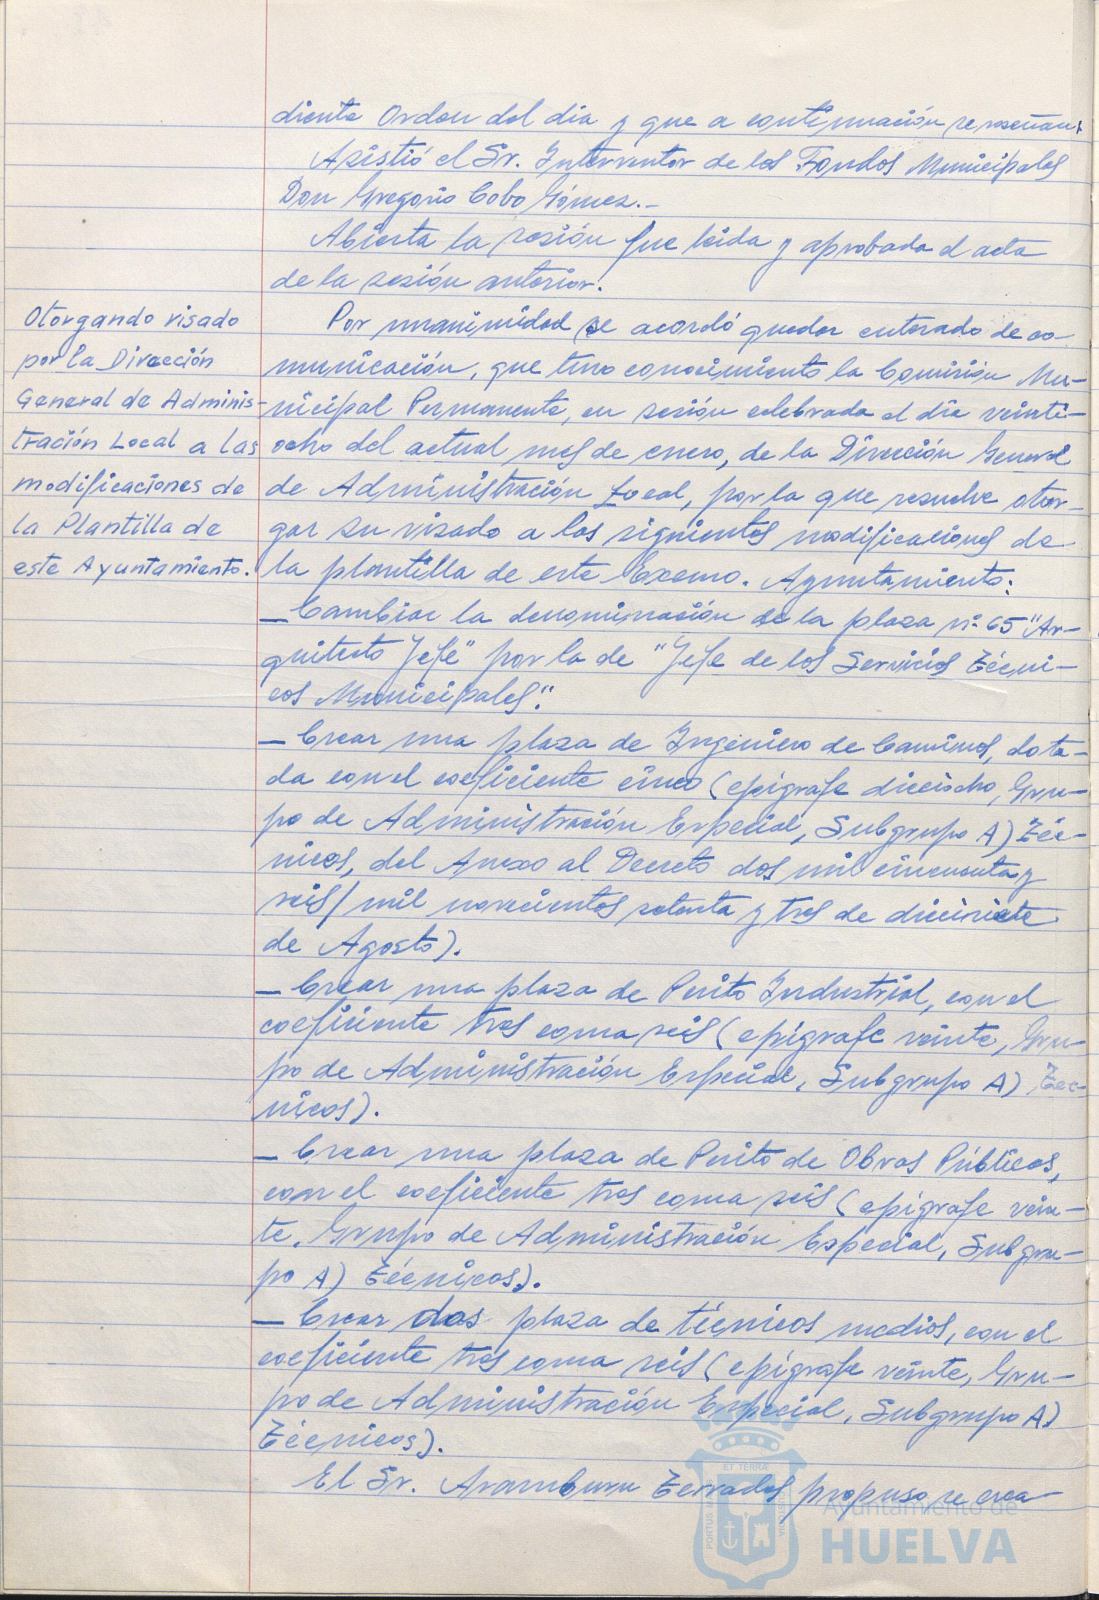 diente Orden del día y que a continuación se reseñan:
Asistió el Sr. Interventor de los Fondos Municipales
Don Gregorio Cobo Gómez.-
Abierta la sesión fue leida y aprobada el acta
de la sesión anterior.
Otorgando visado
por la Dirección
General de Adminis-
tración Local a las
modificaciones de
la Plantilla de
este Ayuntamiento.
Por unanimidad se acordó quedar enterado de co-
municación, que tuvo conocimiento la Comisión Mu-
nicipal Permanente, en sesión celebrada el día veinti-
ocho del actual mes de enero, de la Dirección General
de Administración Local, por la que resuelve otor-
gar su visado a las siguientes modificaciones de
la plantilla de este Excmo. Ayuntamiento:
- Cambiar la denominación de la plaza nº 65 "Ar-
quitecto Jefe" por la de "Jefe de los Servicios Técni-
cos Municipales".
- Crear una plaza de Ingeniero de Caminos, dota-
da con el coeficiente cinco (epígrafe dieciocho, Gru-
po de Administración Especial, Subgrupo A) Téc-
nicos, del Anexo al Decreto dos mil cincuenta y
seis/mil novecientos setenta y tres de diecisiete
de Agosto).
- Crear una plaza de Perito Industrial, con el
coeficiente tres coma seis (epígrafe veinte, Gru-
po de Administración Especial, Subgrupo A) Téc-
nicos).
- Crear una plaza de Perito de Obras Públicas,
con el coeficiente tres coma seis (epígrafe vein-
te, Grupo de Administración Especial, Subgru-
po A) Técnicos).
- Crear dos plaza de técnicos medios, con el
coeficiente tres coma seis (epígrafe veinte, Gru-
po de Administración Especial, Subgrupo A)
Técnicos).
El Sr. Aramburu Terrados propuso se crea-
ET TERRA
PORTUS MARIS
CUSTODIA
Ayuntamiento de
HUELVA